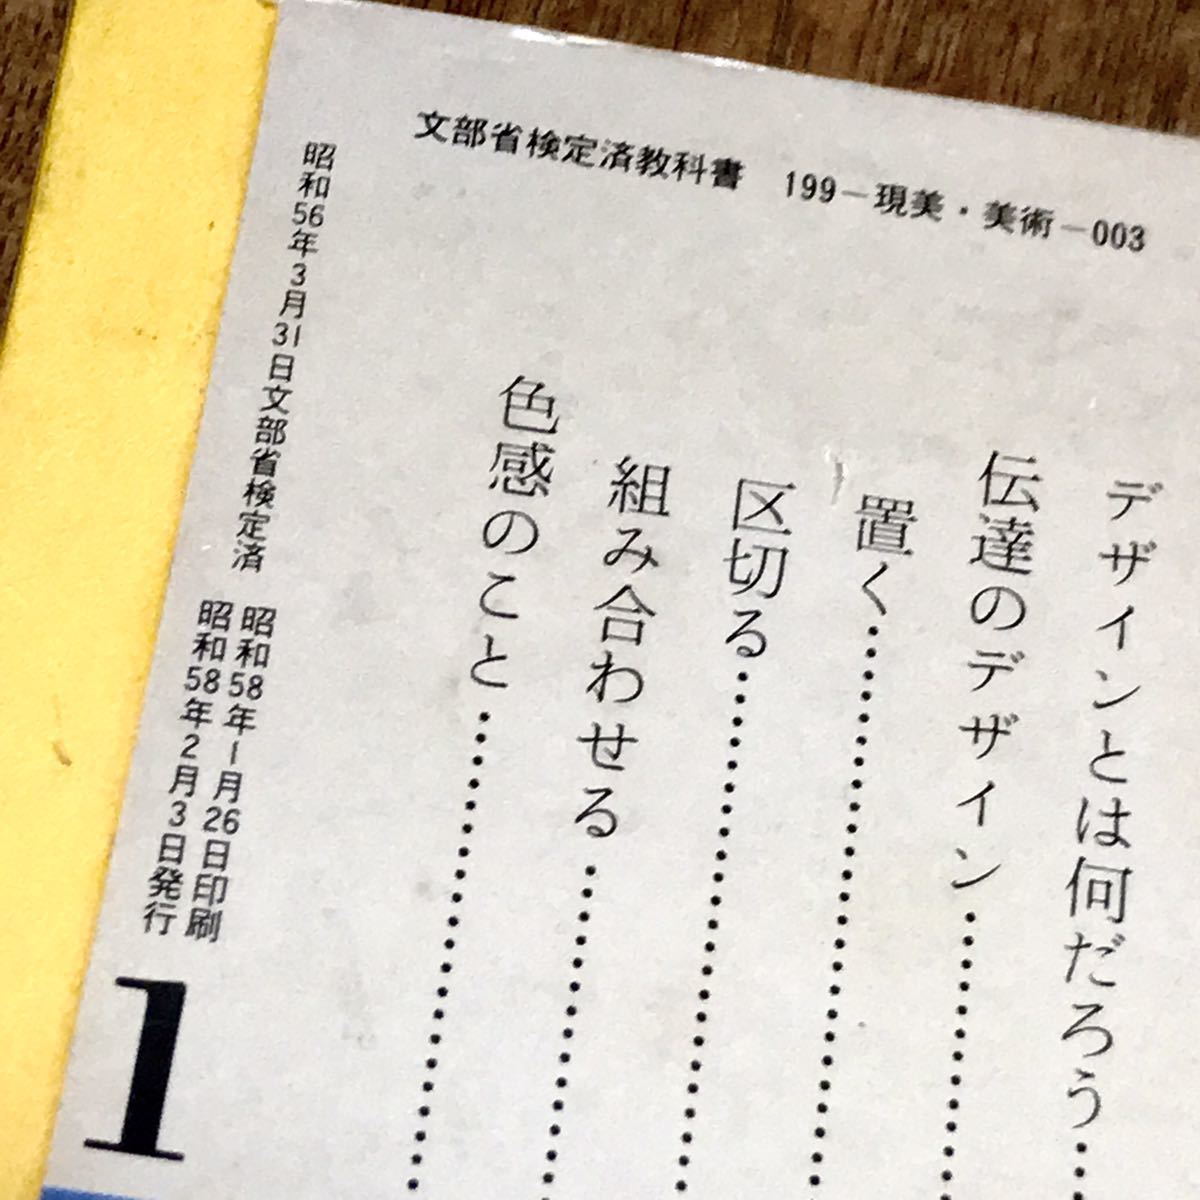 文部省検定済教科書 199-現美・美術-003
デザインとは何だろう
伝達のデザイン
置く
区切る
組み合わせる
色感のこと
昭和56年3月31日文部省検定済
昭和58年1月26日印刷
昭和58年2月3日発行
1